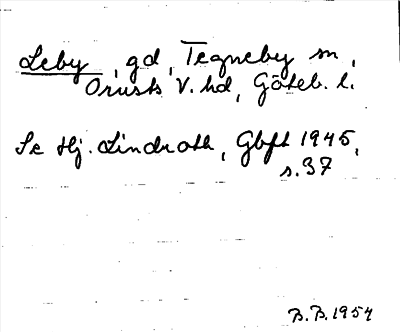 Leby, gd, Tegneby sn,
Orusts V. hd, Göteb. l.
Se Hj. Lindroth, Gbft 1945,
s. 37
B.B. 1954